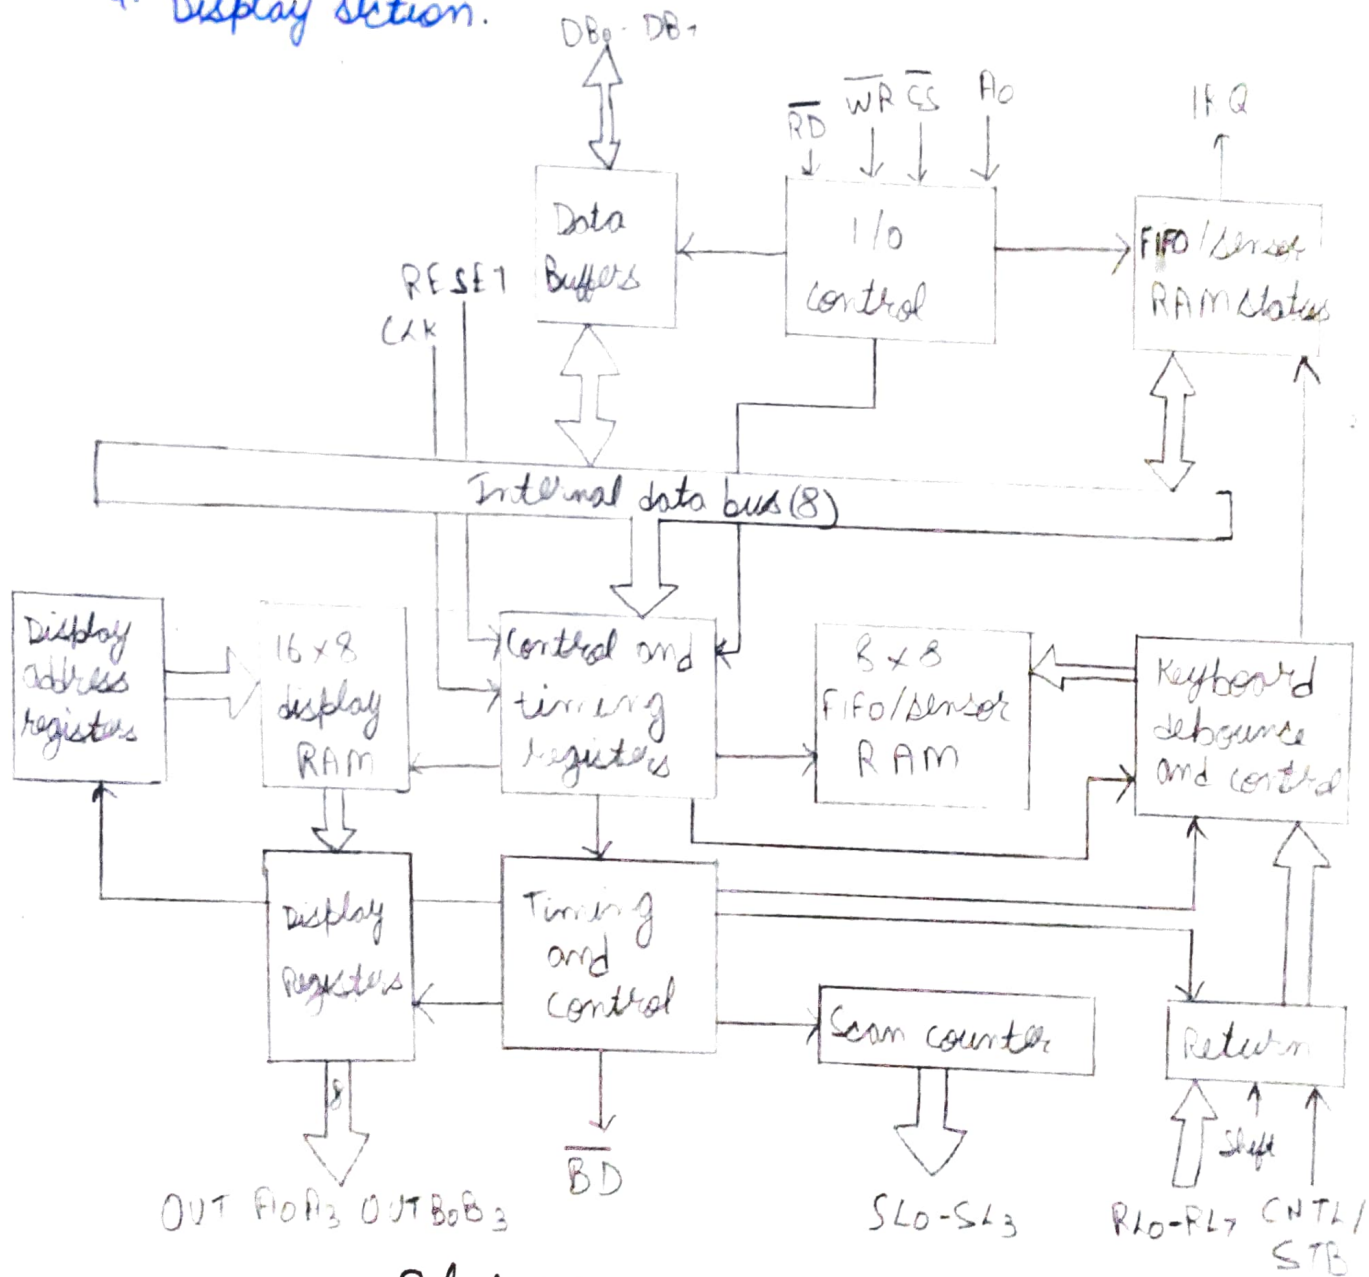 4. Display section.
DB0 - DB7
RD WR CS A0
IRQ
Data
Buffers
I/O
control
FIFO/sensor
RAM status
RESET
CLK
Internal data bus(8)
Display
address
registers
16x8
display
RAM
Control and
timing
registers
8x8
FIFO/sensor
RAM
Keyboard
debounce
and control
Display
Registers
Timing
and
control
Scan counter
Return
8
BD
Shift
OUT A0A3 OUTB0B3
SL0-SL3
RL0-RL7
CNTL/
STB